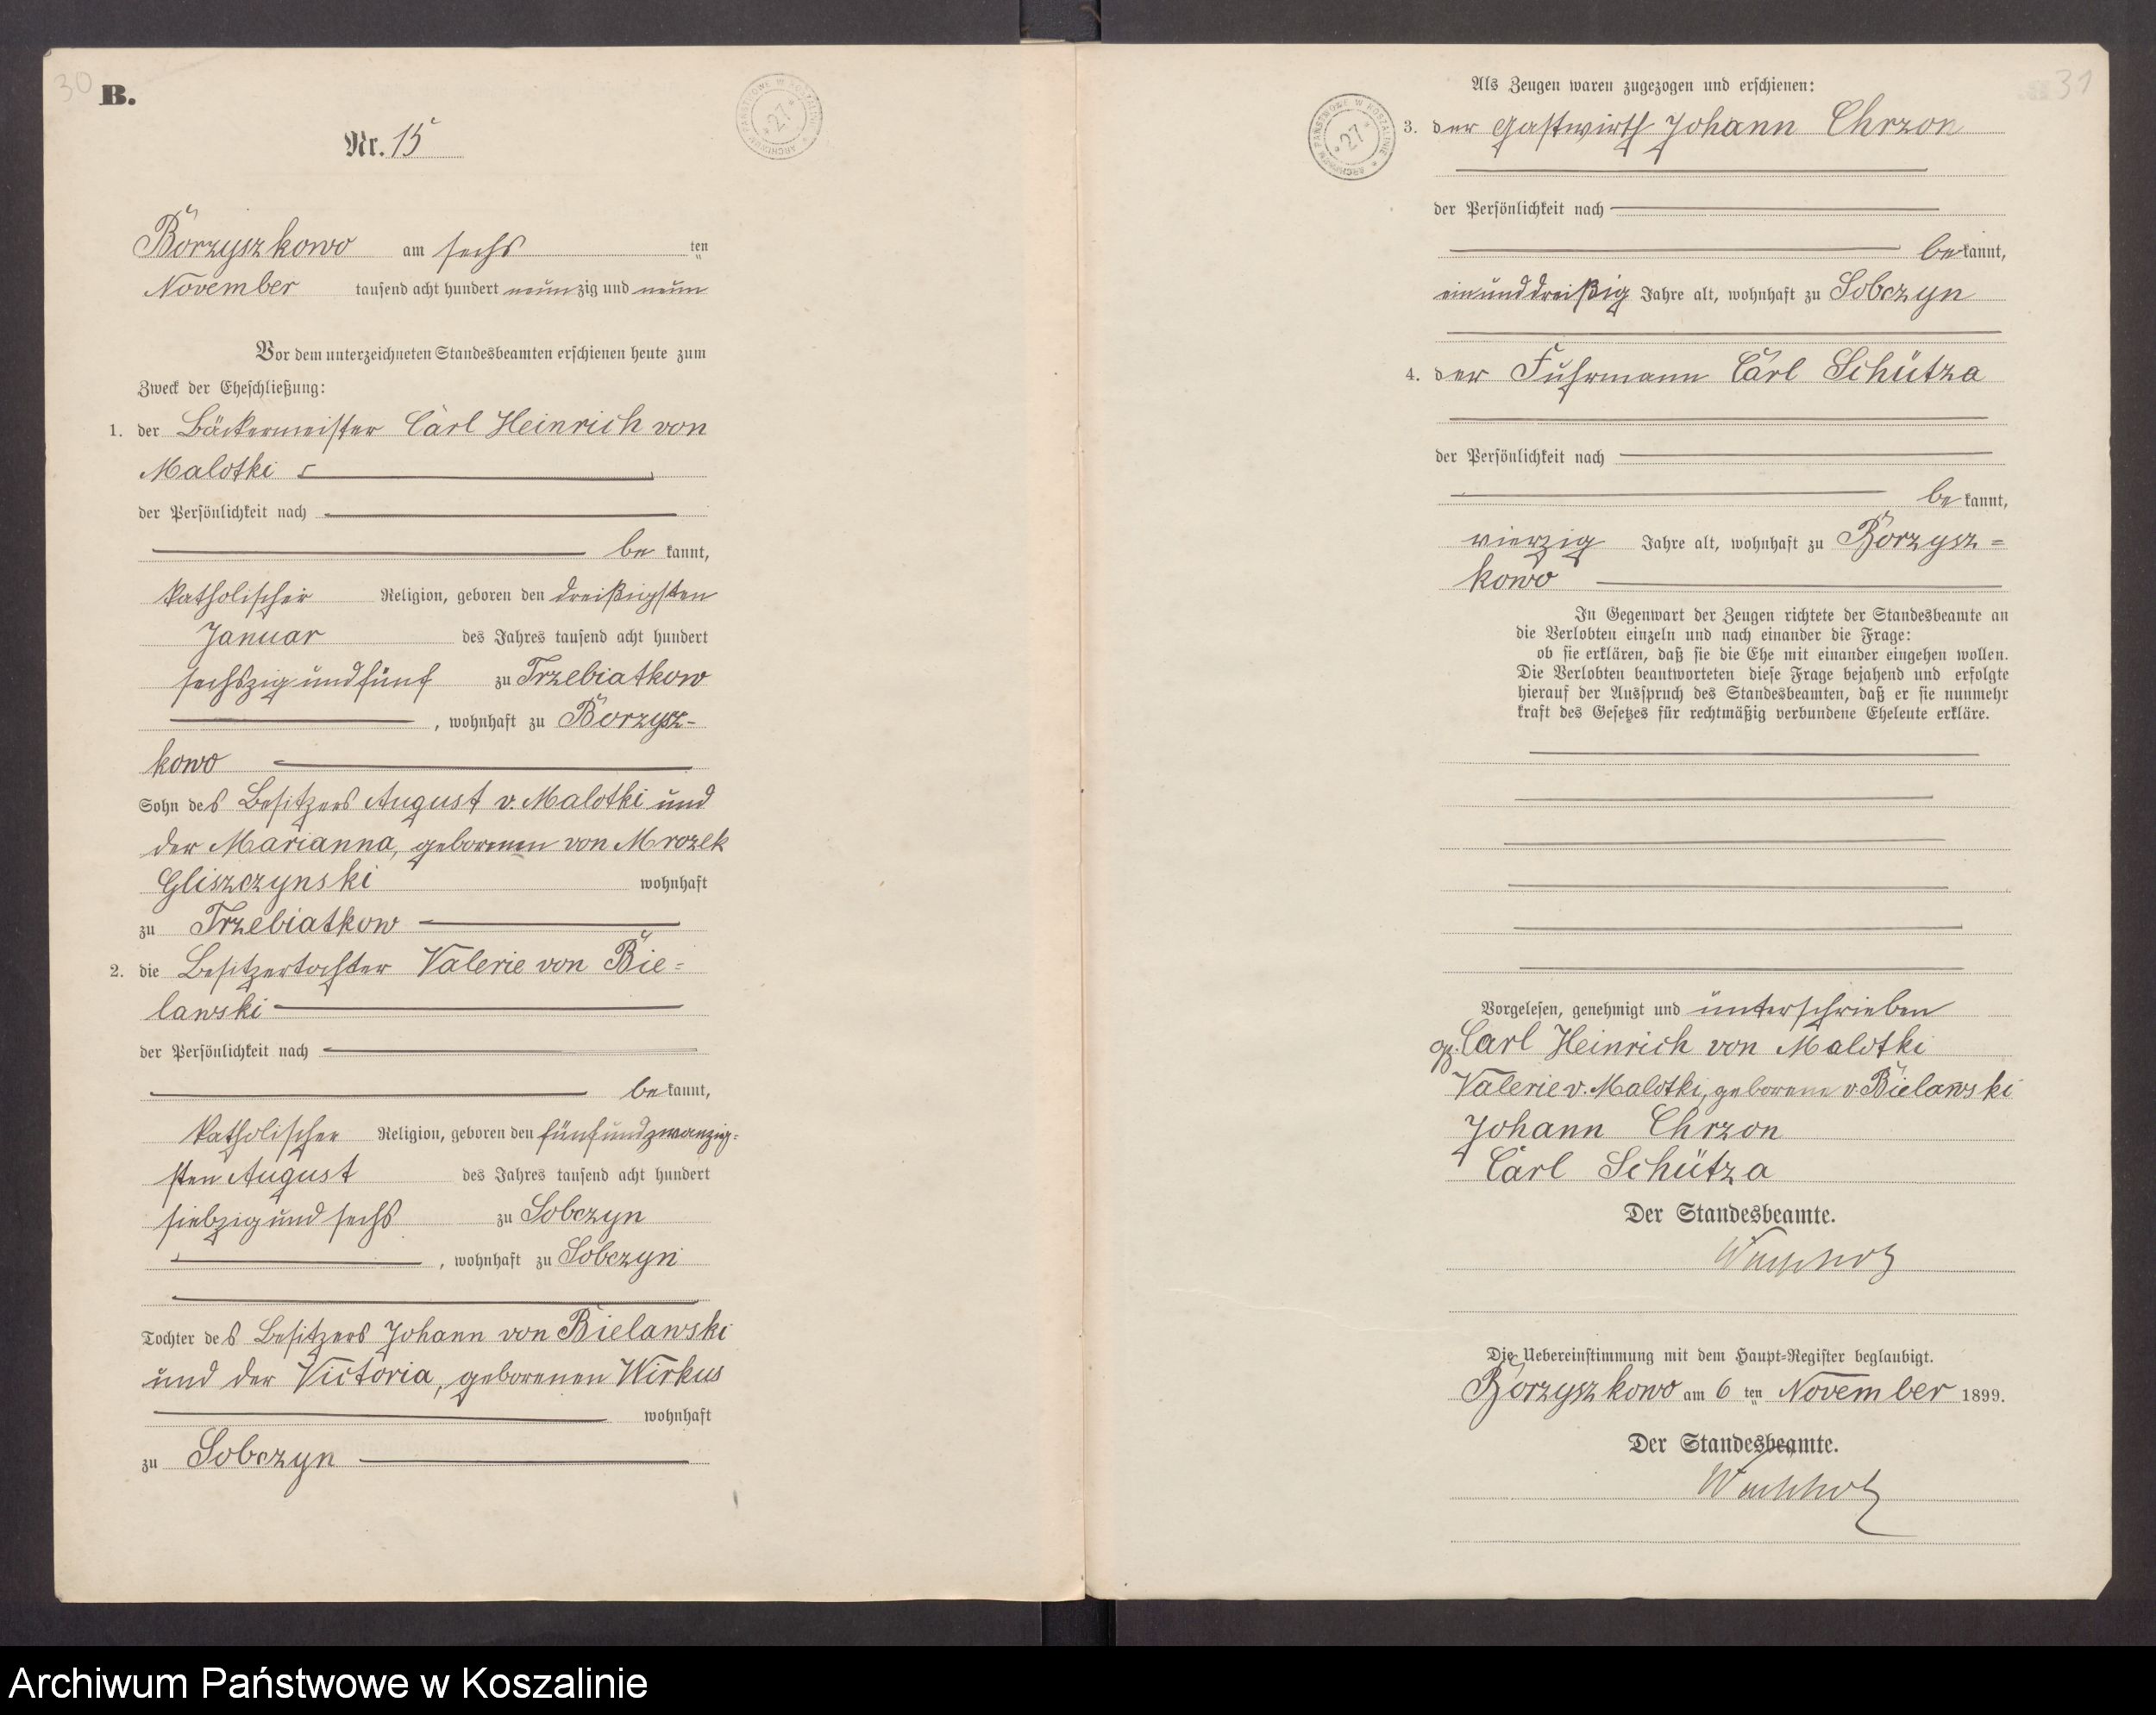 30
B.
Nr. 15
ARCHIWUM PAŃSTWOWE W KOSZALINIE * 27 *
Borzyszkowo am sechs ten
November tausend acht hundert neunzig und neun
Vor dem unterzeichneten Standesbeamten erschienen heute zum
Zweck der Eheschließung:
1. der Bäckermeister Carl Heinrich von
Malotki
der Persönlichkeit nach
be kannt,
katholischer Religion, geboren den dreißigsten
Januar des Jahres tausend acht hundert
sechszig und fünf zu Trzebiatkow
, wohnhaft zu Borzysz-
kowo
Sohn des Besitzers August v. Malotki und
der Marianna, geborenen von Mrozek
Gliszczynski wohnhaft
zu Trzebiatkow
2. die Besitzertochter Valerie von Bie=
lawski
der Persönlichkeit nach
be kannt,
katholischer Religion, geboren den fünfundzwanzig=
sten August des Jahres tausend acht hundert
siebzig und sechs zu Sobczyn
, wohnhaft zu Sobczyn
Tochter des Besitzers Johann von Bielawski
und der Victoria, geborenen Wirkus
wohnhaft
zu Sobczyn
31
ARCHIWUM PAŃSTWOWE W KOSZALINIE * 27 *
Als Zeugen waren zugezogen und erschienen:
3. der Gastwirth Johann Chrzon
der Persönlichkeit nach
be kannt,
einunddreißig Jahre alt, wohnhaft zu Sobczyn
4. der Fuhrmann Carl Schütza
der Persönlichkeit nach
be kannt,
vierzig Jahre alt, wohnhaft zu Borzysz=
kowo
In Gegenwart der Zeugen richtete der Standesbeamte an
die Verlobten einzeln und nach einander die Frage:
ob sie erklären, daß sie die Ehe mit einander eingehen wollen.
Die Verlobten beantworteten diese Frage bejahend und erfolgte
hierauf der Ausspruch des Standesbeamten, daß er sie nunmehr
kraft des Gesetzes für rechtmäßig verbundene Eheleute erkläre.
Vorgelesen, genehmigt und unterschrieben
gz. Carl Heinrich von Malotki
Valerie v. Malotki, geborene v. Bielawski
Johann Chrzon
Carl Schütza
Der Standesbeamte.
Wachholz
Die Uebereinstimmung mit dem Haupt-Register beglaubigt.
Borzyszkowo am 6 ten November 1899.
Der Standesbeamte.
Wachholz
Archiwum Państwowe w Koszalinie